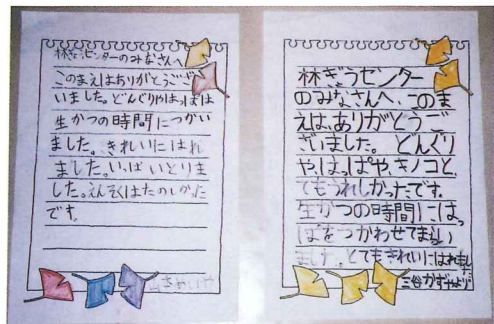 林ぎょうセンターのみなさんへ
このまえはありがとうござ
いました。どんぐりやはっぱは
生かつの時間につかい
ました。きれいにはれ
ました。いっぱいとりま
した。えんそくはたのしかった
です。
林ぎょうセンター
のみなさんへ、このま
えは、ありがとうご
ざいました。どんぐり
や、はっぱや、キノコと
てもうれしかったです。
生かつの時間にはっ
ぱをつかわせてもらい
ました。とてもきれいにはれました
より